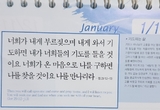 January 1/1
너희가 내게 부르짖으며 내게 와서 기
도하면 내가 너희들의 기도를 들을 것
이요 너희가 온 마음으로 나를 구하면
나를 찾을 것이요 나를 만나리라